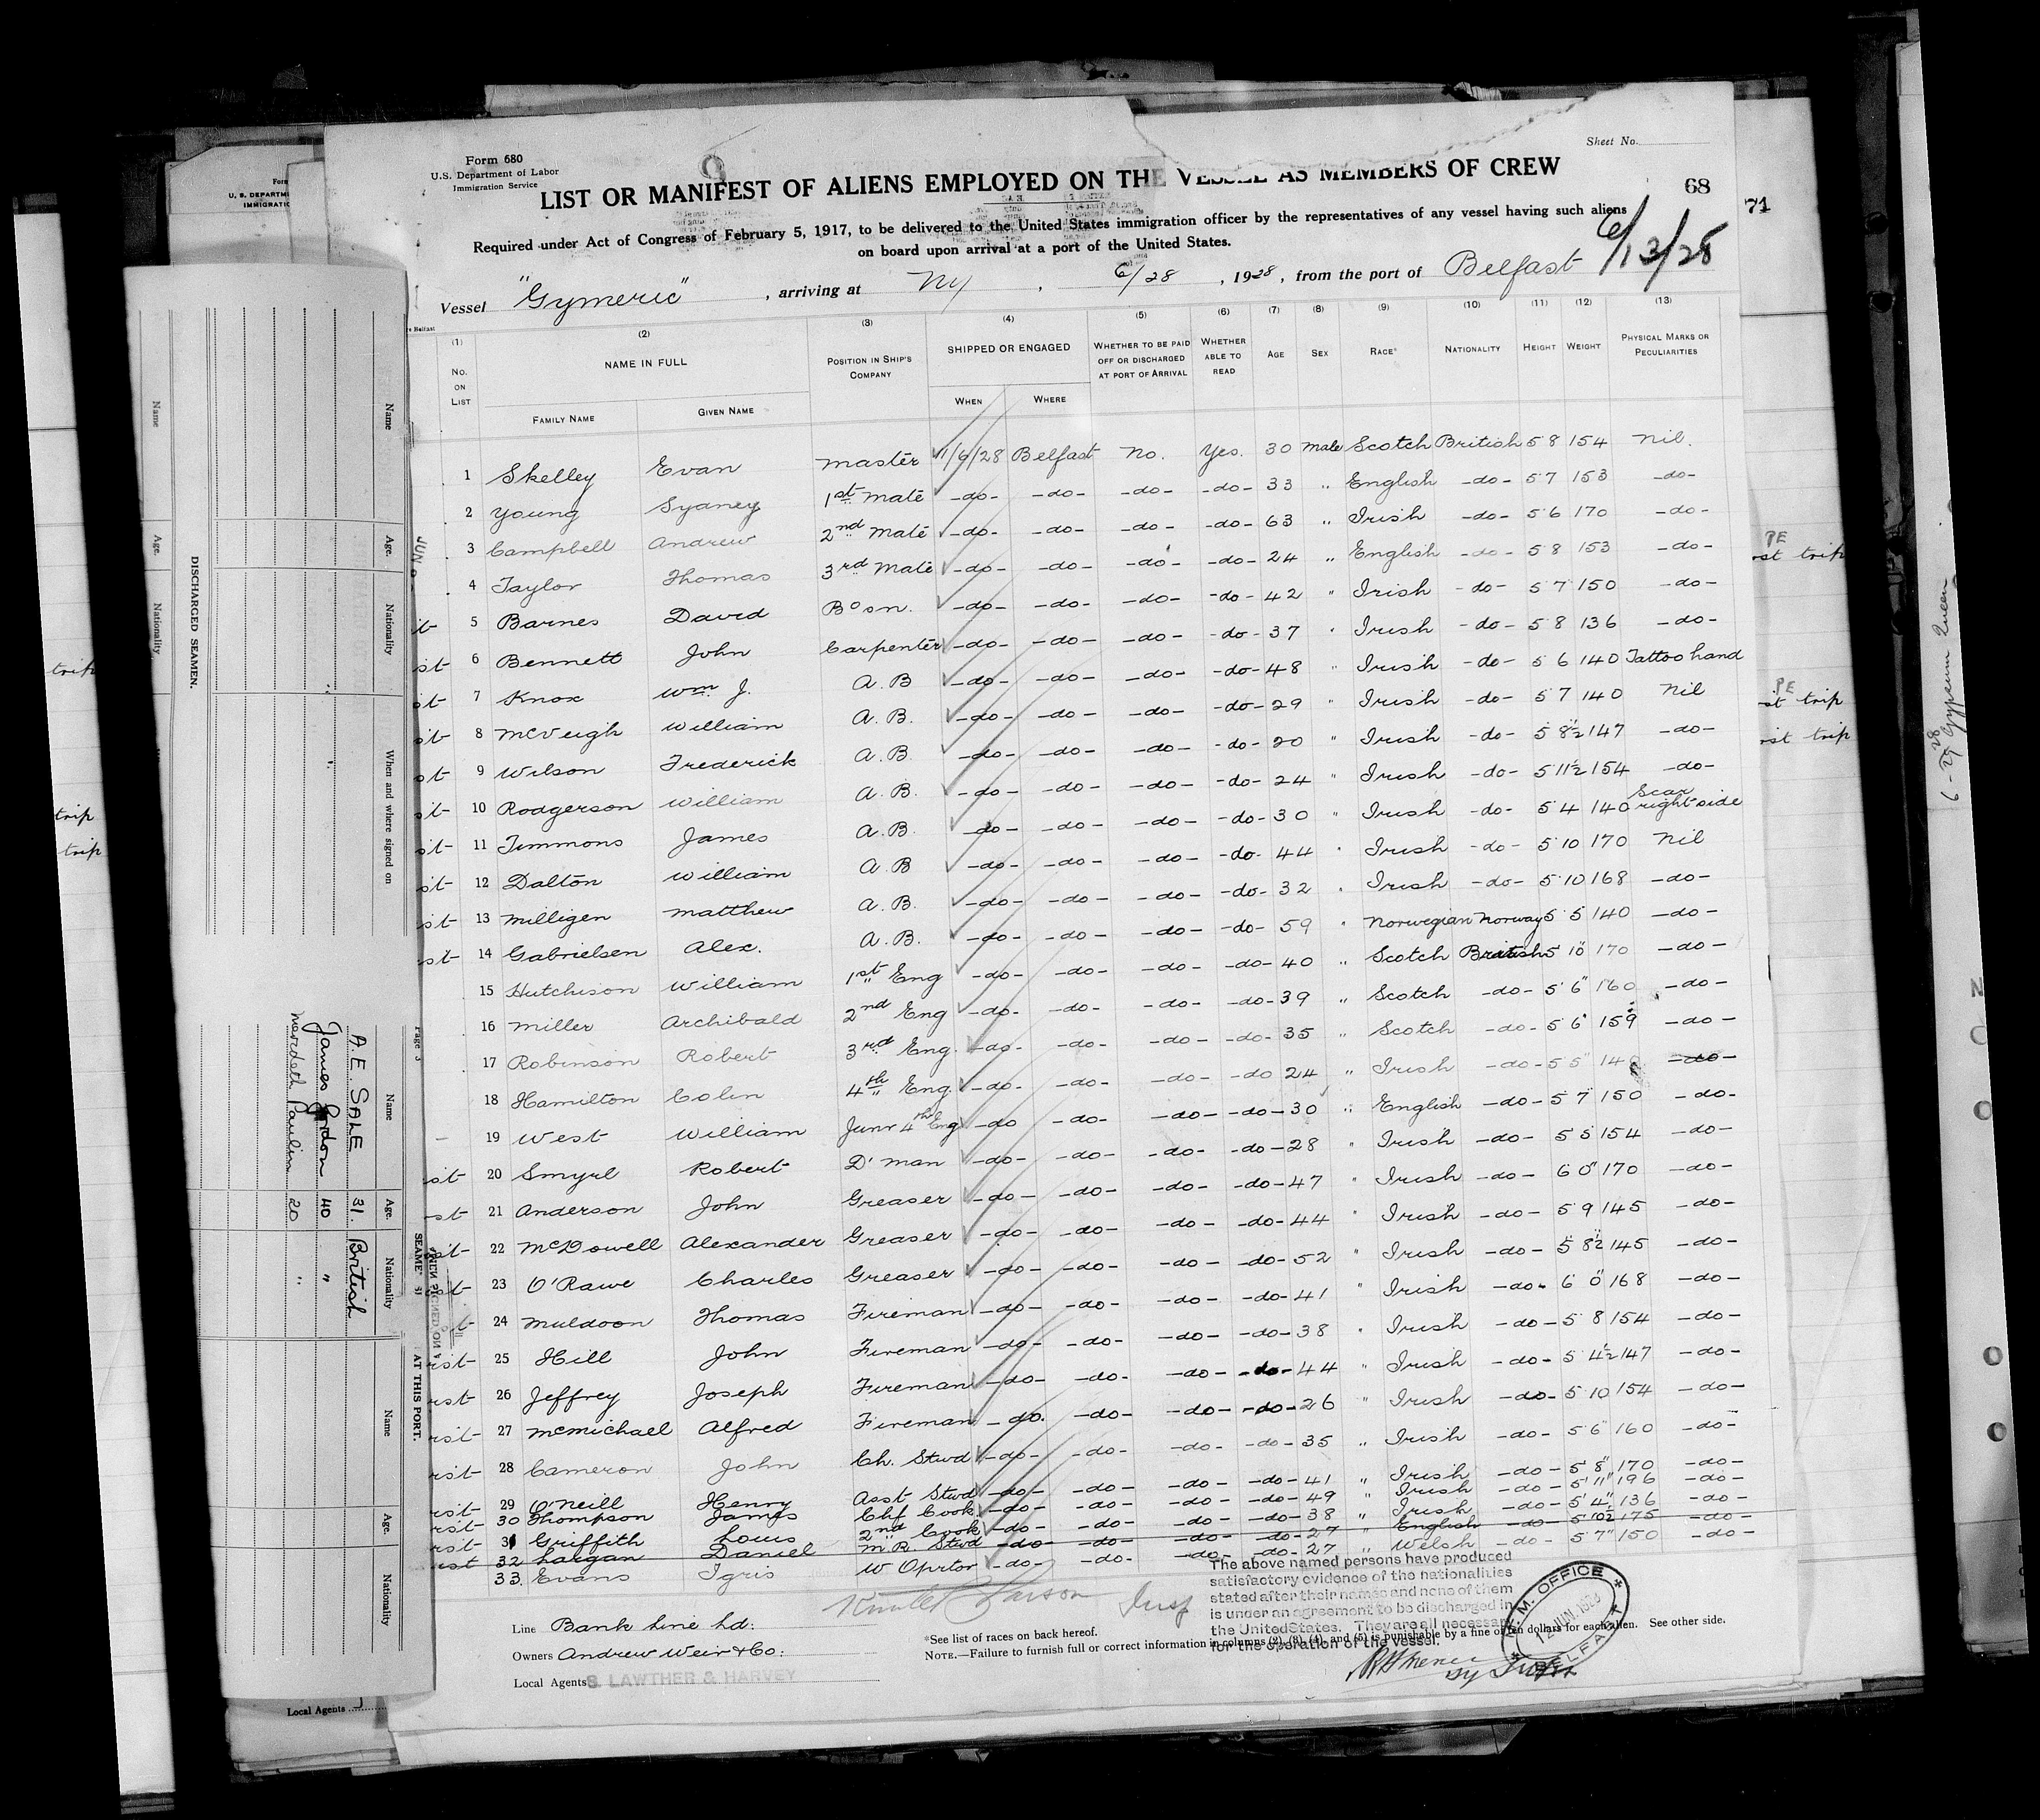 Sheet No.
Form 680
U.S. Department of Labor
Immigration Service
LIST OR MANIFEST OF ALIENS EMPLOYED ON THE VESSEL AS MEMBERS OF CREW
68
71
Required under Act of Congress of February 5, 1917, to be delivered to the United States immigration officer by the representatives of any vessel having such aliens
on board upon arrival at a port of the United States.
6/13/28
Vessel "Gymeric", arriving at Ny, 6/28, 1928, from the port of Belfast
(1) (2) (3) (4) (5) (6) (7) (8) (9) (10) (11) (12) (13)
No. on List NAME IN FULL Position in Ship's Company SHIPPED OR ENGAGED Whether to be paid off or discharged at port of arrival Whether able to read Age Sex Race* Nationality Height Weight Physical Marks or Peculiarities
Family Name Given Name When Where
1 Skelley Evan Master 1/6/28 Belfast No. Yes. 30 Male Scotch British 5 8 154 Nil.
2 Young Sydney 1st Mate -do- -do- -do- -do- 33 " English -do- 5 7 153 -do-
3 Campbell Andrew 2nd Mate -do- -do- -do- -do- 63 " Irish -do- 5 6 170 -do-
4 Taylor Thomas 3rd Mate -do- -do- -do- -do- 24 " English -do- 5 8 153 -do-
5 Barnes David Bosn. -do- -do- -do- -do- 42 " Irish -do- 5 7 150 -do-
6 Bennett John Carpenter -do- -do- -do- -do- 37 " Irish -do- 5 8 136 -do-
7 Knox Wm J. A.B -do- -do- -do- -do- 48 " Irish -do- 5 6 140 Tattoo hand
8 McVeigh William A.B. -do- -do- -do- -do- 29 " Irish -do- 5 7 140 Nil
9 Wilson Frederick A.B. -do- -do- -do- -do- 20 " Irish -do- 5 8½ 147 -do-
10 Rodgerson William A.B. -do- -do- -do- -do- 24 " Irish -do- 5 11½ 154 -do-
11 Timmons James A.B. -do- -do- -do- -do- 30 " Irish -do- 5 4 140 Scar right side
12 Dalton William A.B -do- -do- -do- -do- 44 " Irish -do- 5 10 170 Nil
13 Milligen Matthew A.B. -do- -do- -do- -do- 32 " Irish -do- 5 10 168 -do-
14 Gabrielsen Alex. A.B. -do- -do- -do- -do- 59 " Norwegian Norway 5 5 140 -do-
15 Hutchison William 1st Eng -do- -do- -do- -do- 40 " Scotch British 5 10 170 -do-
16 Miller Archibald 2nd Eng -do- -do- -do- -do- 39 " Scotch -do- 5 6" 160 -do-
17 Robinson Robert 3rd Eng. -do- -do- -do- -do- 35 " Scotch -do- 5 6 159 -do-
18 Hamilton Colin 4th Eng. -do- -do- -do- -do 24 " Irish -do- 5 5" -do-
19 West William Junr 4th Eng -do -do- -do- -do- 30 " English -do- 5 7 150 -do-
20 Smyrl Robert D' man -do- -do- -do- -do- 28 " Irish -do- 5 5 154 -do-
21 Anderson John Greaser -do- -do- -do- -do- 47 " Irish -do- 6 0" 170 -do-
22 McDowell Alexander Greaser -do- -do- -do- -do- 44 " Irish -do- 5 9 145 -do-
23 O'Rawe Charles Greaser -do- -do- -do- -do- 52 " Irish -do- 5 8½ 145 -do-
24 Muldoon Thomas Fireman -do- -do- -do- -do- 41 " Irish -do- 6 0" 168 -do-
25 Hill John Fireman -do- -do- -do- -do- 38 " Irish -do- 5 8 154 -do-
26 Jeffrey Joseph Fireman -do- -do- -do- -do- 44 " Irish -do- 5 4½ 147 -do-
27 McMichael Alfred Fireman -do. -do- -do- -do- 26 " Irish -do- 5 10 154 -do-
28 Cameron John Ch. Stwd -do- -do- -do- -do- 35 " Irish -do- 5 6 160 -do-
29 O'Neill Henry Asst Stwd -do- -do- -do- -do- 41 " Irish -do- 5 8" 170 -do-
30 Thompson James Chf Cook -do- -do- -do- -do- 49 " Irish -do- 5 11" 196 -do-
31 Griffith Louis 2nd Cook -do- -do- -do- -do- 38 " Irish -do- 5 4" 136 -do-
32 Largan Daniel M.R. Stwd -do- -do- -do- -do- 27 " English -do- 5 10½ 175 -do-
33. Evans Igris W Oprtor -do- -do- -do- -do- 27 " Welsh -do- 5 7" 150 -do-
The above named persons have produced
satisfactory evidence of the nationalities
stated after their names and none of them
is under an agreement to be discharged in
the United States. They are all necessary
for the operation of the vessel.
Insp
M. OFFICE
12 JUN. 1928
BELFAST
Line Bank Line Ld:
Owners Andrew Weir & Co:
Local Agents S. LAWTHER & HARVEY
*See list of races on back hereof.
NOTE.—Failure to furnish full or correct information in columns (2), (3), (4), and (5) is punishable by a fine of ten dollars for each alien. See other side.
DISCHARGED SEAMEN.
Name Age. Nationality When and where signed on
Name Age. Nationality
A.E. SALE 31. British
James Gordon 40 "
Merideth Paulin 20 "
Page 3
AT THIS PORT.
Name Age. Nationality
Local Agents
trip
trip
trip
PE
st trip
PE
st trip
rst trip